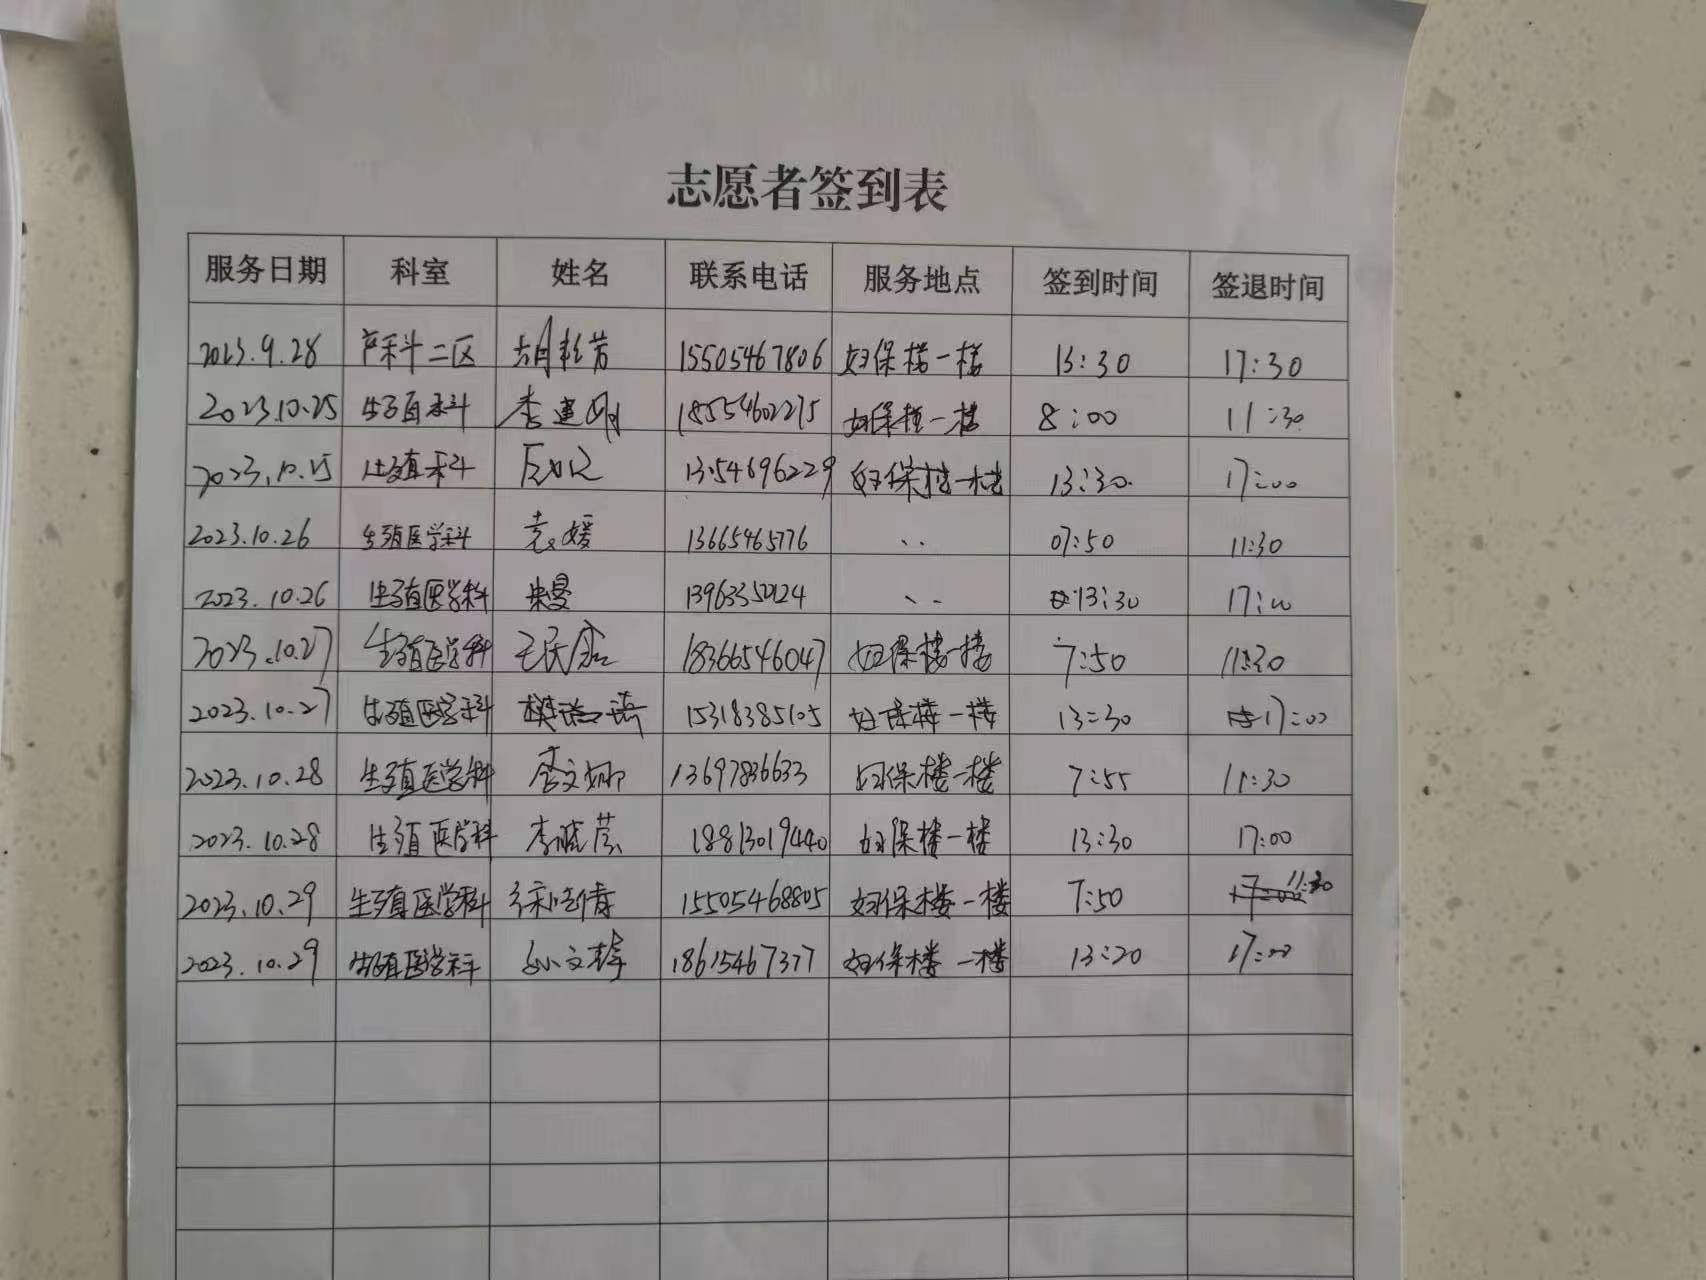 志愿者签到表
服务日期 科室 姓名 联系电话 服务地点 签到时间 签退时间
2023.9.28 产科二区 胡 芳 15505467806 妇保楼一楼 13:30 17:30
2023.10.25 生殖科 李建明 18554602275 妇保楼一楼 8:00 11:30
2023.10.25 生殖科 13.54696229 妇保楼一楼 13:30 17:00
2023.10.26 生殖医学科 袁媛 13665465776 、、 07:50 11:30
2023.10.26 生殖医学科 朱曼 13963350124 、、 13:30 17:00
2023.10.27 生殖医学科 王 18366546047 妇保楼一楼 7:50 11:30
2023.10.27 生殖医学科 15318385105 妇保楼一楼 13:30 17:00
2023.10.28 生殖医学科 李文娜 13697836633 妇保楼一楼 7:55 11:30
2023.10.28 生殖医学科 李晓 18813019440 妇保楼一楼 13:30 17:00
2023.10.29 生殖医学科 徐 倩 15505468805 妇保楼一楼 7:50 11:30
2023.10.29 生殖医学科 文 18615467377 妇保楼一楼 13:20 17:00